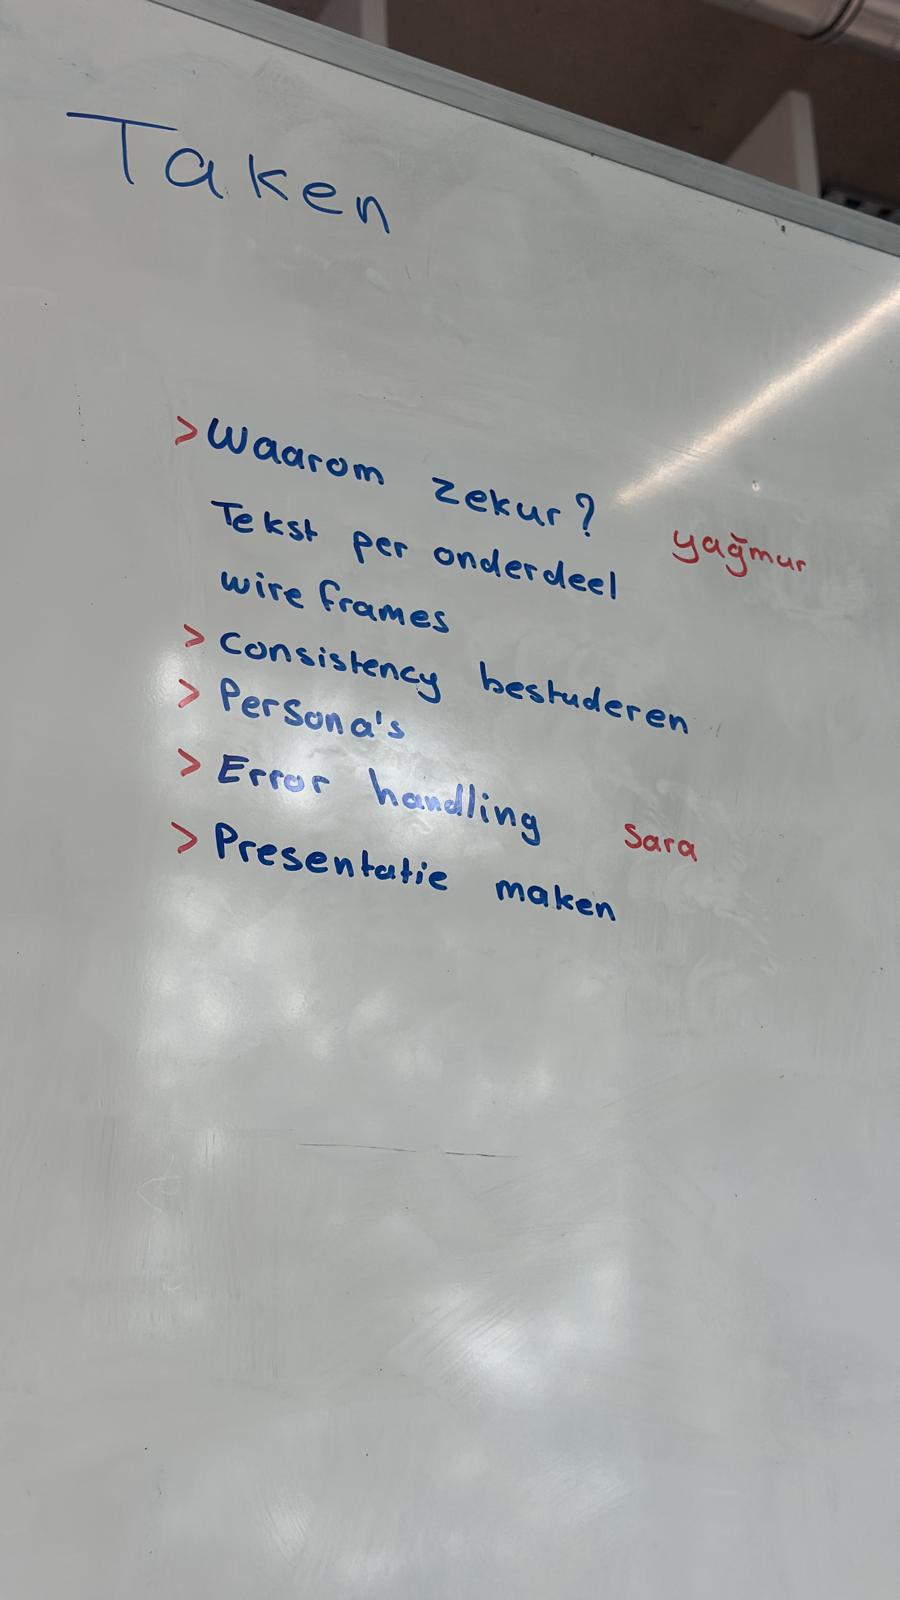 Taken
> Waarom zekur?
Tekst per onderdeel yağmur
wire frames
> Consistency bestuderen
> Persona's
> Error handling sara
> Presentatie maken